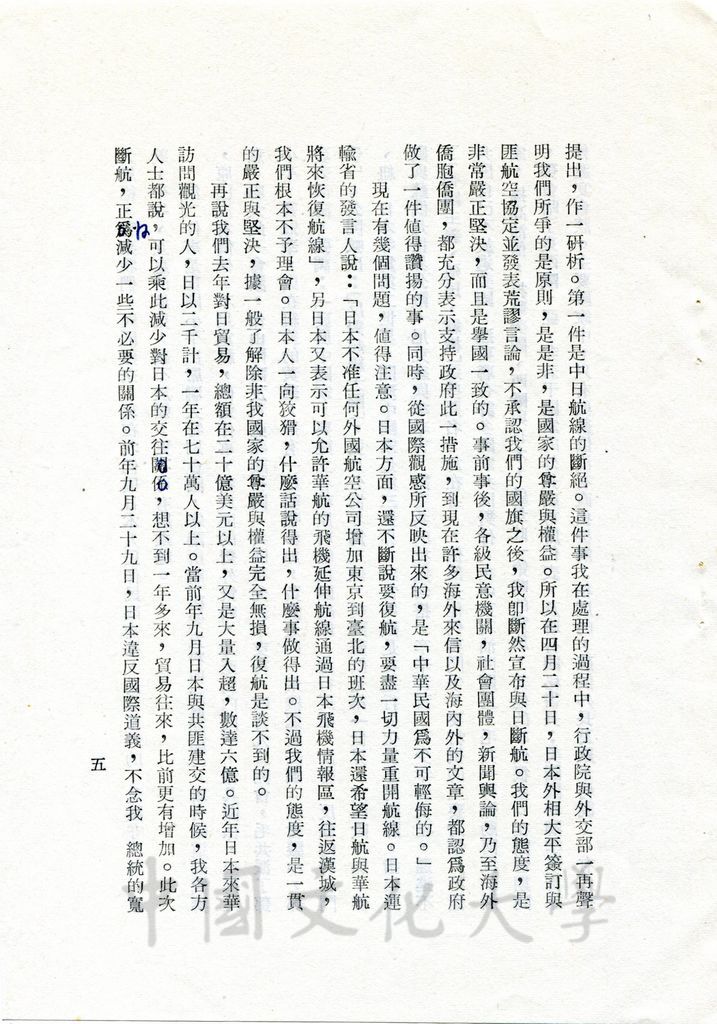 提出，作一研析。第一件是中日航線的斷絕。這件事我在處理的過程中，行政院與外交部一再聲
明我們所爭的是原則，是是非，是國家的尊嚴與權益。所以在四月二十日，日本外相大平簽訂與
匪航空協定並發表荒謬言論，不承認我們的國旗之後，我卽斷然宣布與日斷航。我們的態度，是
非常嚴正堅決，而且是擧國一致的。事前事後，各級民意機關，社會團體，新聞輿論，乃至海外
僑胞僑團，都充分表示支持政府此一措施，到現在許多海外來信以及海內外的文章，都認爲政府
做了一件値得讚揚的事。同時，從國際觀感所反映出來的，是「中華民國爲不可輕侮的。」
現在有幾個問題，値得注意。日本方面，還不斷說要復航，要盡一切力量重開航線。日本運
輸省的發言人說：「日本不准任何外國航空公司增加東京到臺北的班次，日本還希望日航與華航
將來恢復航線」，另日本又表示可以允許華航的飛機延伸航線通過日本飛機情報區，往返漢城，
我們根本不予理會。日本人一向狡猾，什麼話說得出，什麼事做得出。不過我們的態度，是一貫
的嚴正與堅決，據一般了解除非我國家的尊嚴與權益完全無損，復航是談不到的。
再說我們去年對日貿易，總額在二十億美元以上，又是大量入超，數達六億。近年日本來華
訪問觀光的人，日以二千計，一年在七十萬人以上。當前年九月日本與共匪建交的時候，我各方
人士都說，可以乘此減少對日本的交往關係，想不到一年多來，貿易往來，比前更有增加。此次
斷航，正爲減少一些不必要的關係。前年九月二十九日，日本違反國際道義，不念我 總統的寬
五
中國文化大學